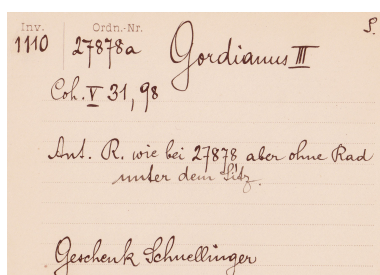 Inv. Ordn.-Nr. S.
1110 27878a Gordianus III
Coh. V 31, 98
Ant. R. wie bei 27878 aber ohne Rad
unter dem Sitz.
Geschenk Schnellinger